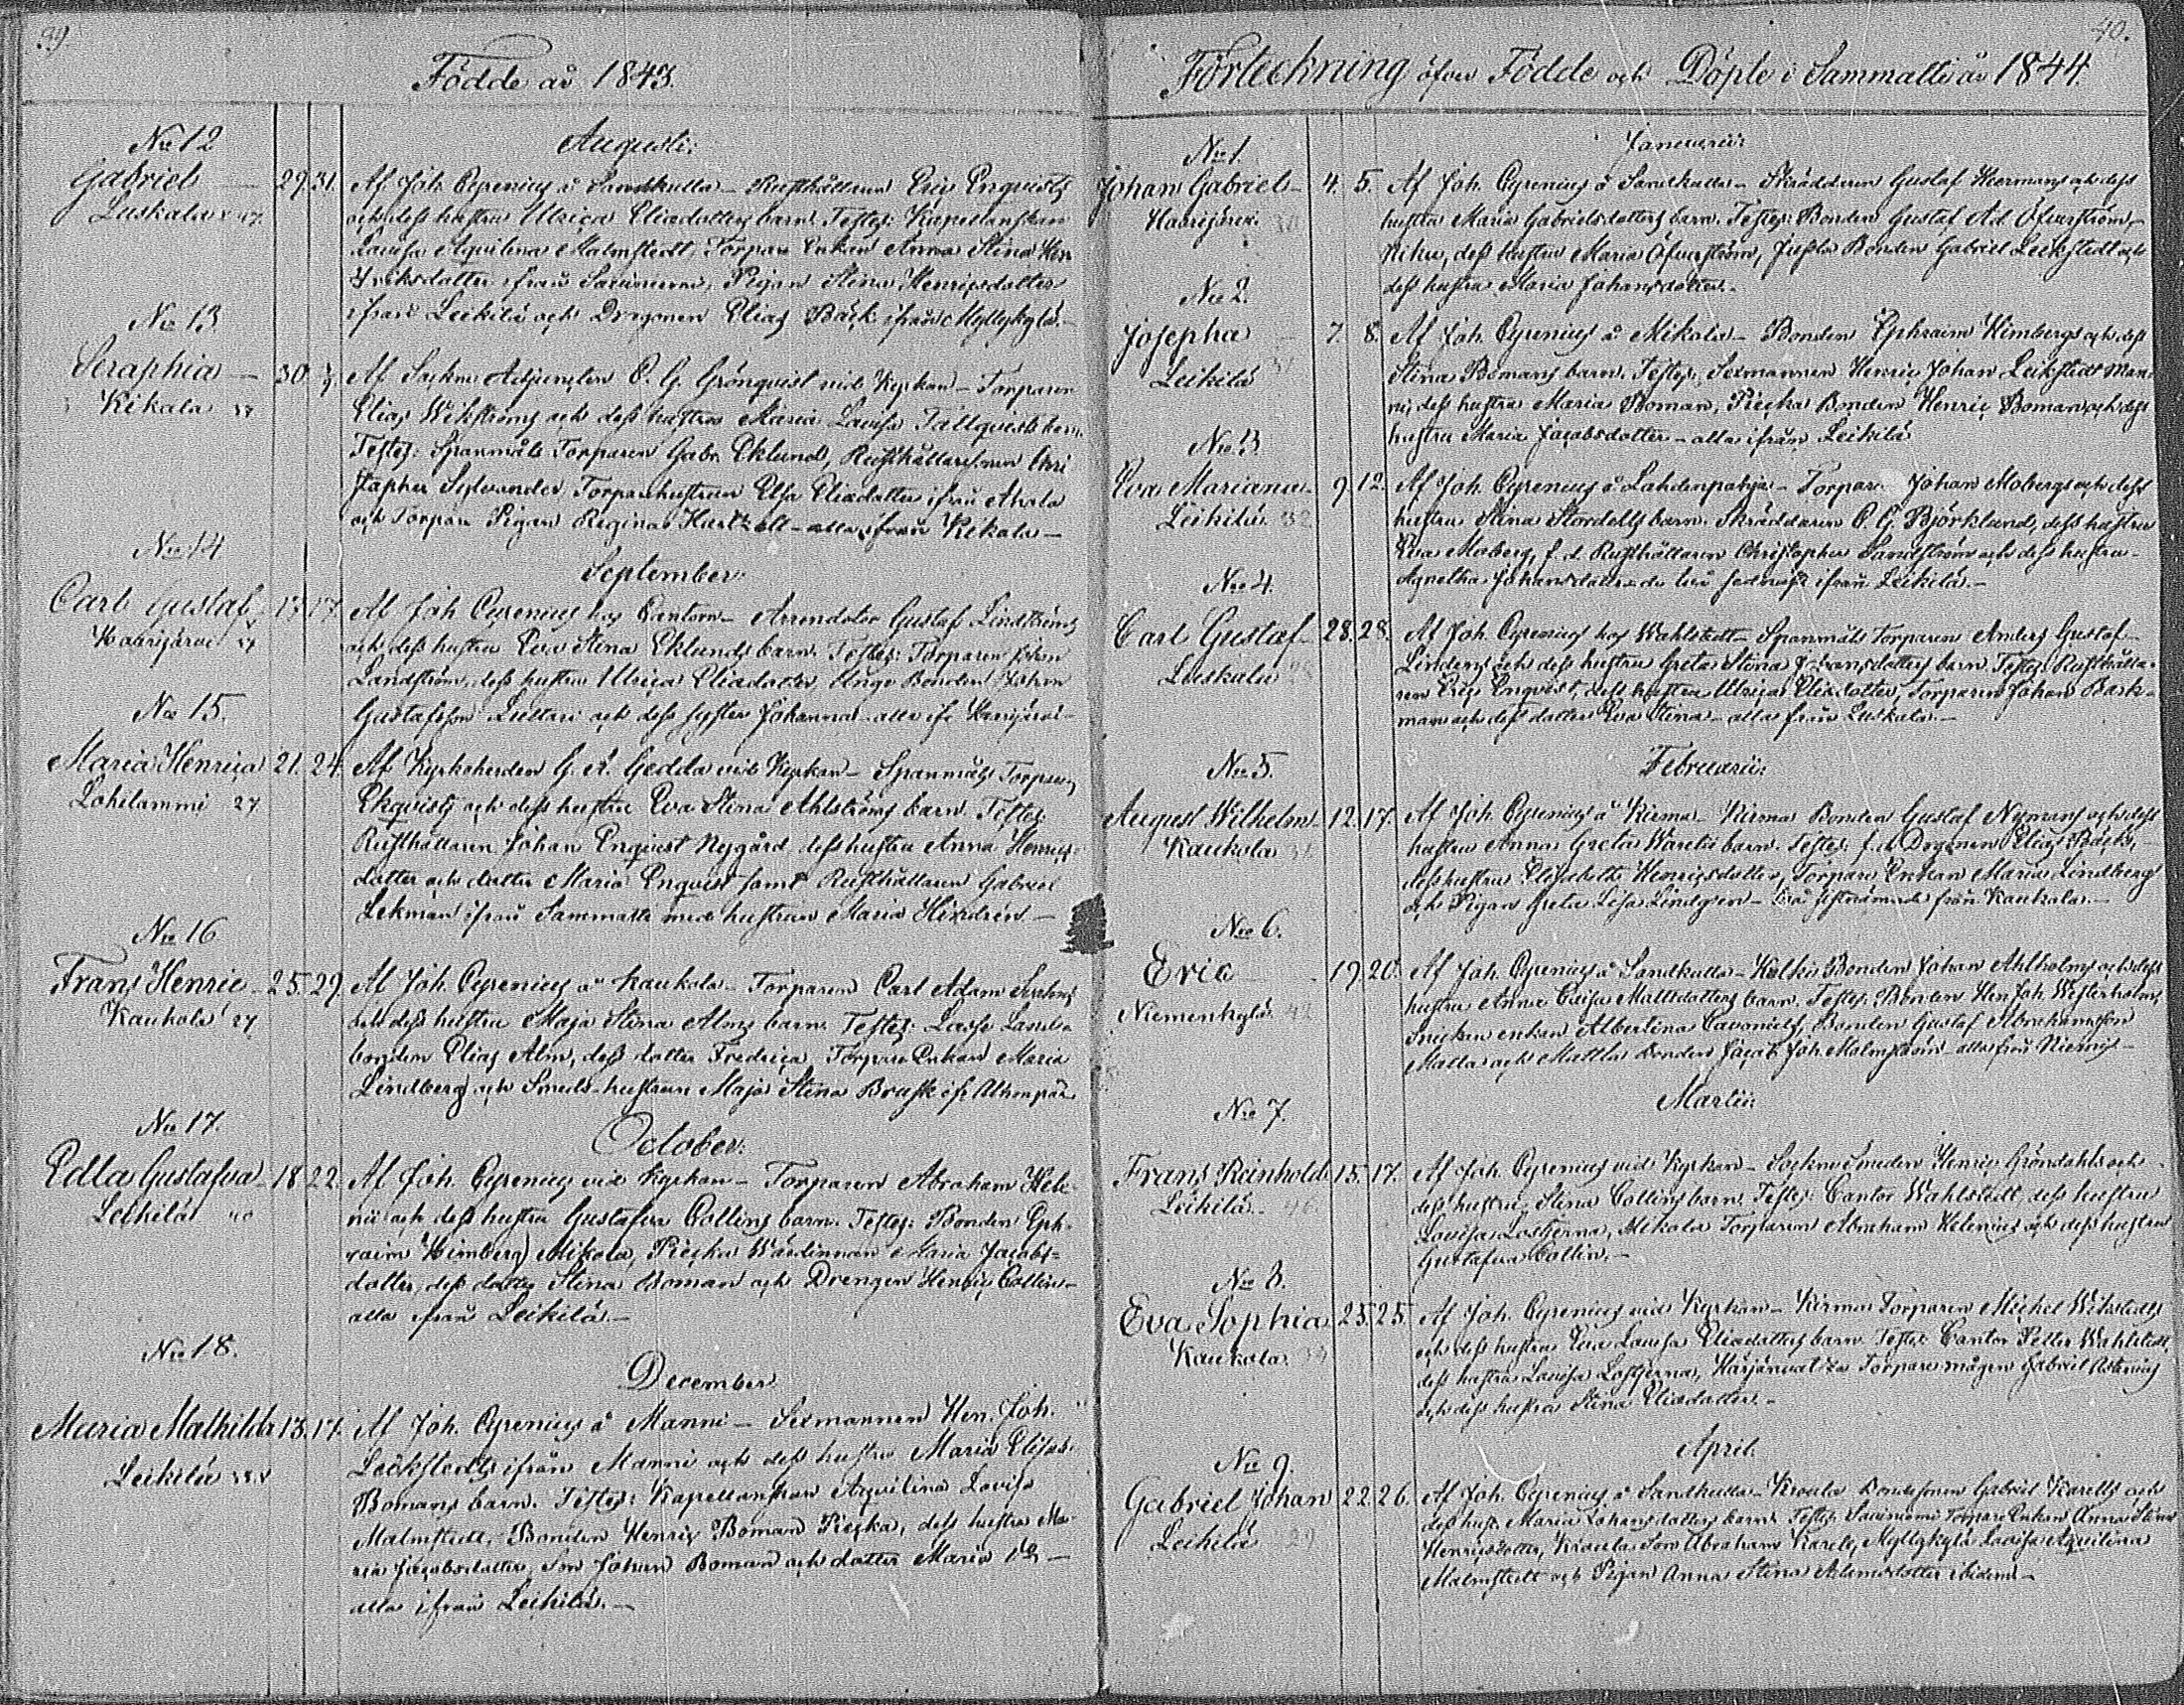 39.
Födde år 1843.
Augusti:
No 12
Gabriel — 29. 31. Af Joh. Cyrenius å Sandkulla — Rusthållaren Eric Enquists
Luskala 47. och dess hustru Ulrica Eliædotters barn. Testes: Kapellanskan
Lovisa Aquilina Malmstedt, Torpare Enkan Anna Stina Hen
driksdotter ifrån Pigan Stina Henricsdotter
ifrån Leikilä och Dragonen Elias Bäck ifrån Myllykylä. —
No 13
Seraphia — 30. Af Sockne Adjuncten C. G. Grönquist vid Kyrkan — Torparen
Kikala 27 Elias Wikströms och dess hustrus Maria Lovisa Tallquists barn.
Testes: Spanmåls Torparen Gabr. Eklund, Rusthållaresonen Chri
stopher Sylvander, Torparehustrun Elsa Eliædotter ifrån Ahala
och Torpare Pigan Regina — alla ifrån Kikala —
September:
No 14
Carl Gustaf 17. 17. Af Joh Cyrenius hos Cantorn — Arrendator Gustaf Lindströms
Haarijärvi 27 och dess hustru Eva Stina Eklunds barn. Testes: Torparen Johan
Landström, dess hustru Ulrica Eliædotter, Unge Bonden Johan
Gustafsson Lultari och dess syster Johanna — alla ifr. Haarijärvi —
No 15.
Maria Henrica 21. 24. Af Kyrkoherden G. A. Gedda vid Kyrkan — Spanmåls Torparen
Lohilammi 27 Ekquists och dess hustru Eva Stina Ahlströms barn. Testes:
Rusthållaren Johan Enquist Nygård dess hustru Anna Henrics-
dotter och dotter Maria Enquist samt Rusthållaren Gabriel
Lekman ifrån Sammatti med hustrun Maria Hindrén —
No 16
Frans Henric — 25. 29. Af Joh. Cyrenius å Kaukola — Torparen Carl Adam
Kaukola 27 och dess hustru Maja Stina Alms barn. Testes: Lassi Land-
bonden Elias Alm, dess dotter Fredrica, Torpare Enkan Maria
Lindberg och Smeds-hustrun Maja Stina Brusk ifr.
No 17.
October:
Edla Gustafva — 18 22. Af Joh. Cyrenius vid Kyrkan — Torparen Abraham Hele
Leikilä 40 nii och dess hustru Gustafva Collins barn. Testes: Bonden Eph-
raim Himberg Mikola, Piecka Wärdinnan Maria Jacobs-
dotter, dess dotter Stina Boman och Drengen Henric Collin —
alla ifrån Leikilä. —
No 18.
December
Maria Mathilda 13. 17. Af Joh. Cyrenius å Manni — Sexmannen Hen. Joh.
Leikilä Leikstedts ifrån Manni och dess hustru Maria Elisab.
Bomans barn. Testes: Kapellanskan Aquilina Lovisa
Malmstedt, Bonden Henric Boman Piecka, dess hustru Ma-
ria Jacobsdotter, son Johan Boman och dotter Maria d:o —
alla ifrån Leikilä. —
40.
Förteckning öfver Födde och Döpte i Sammatti år 1844.
Januarii:
No 1.
Johan Gabriel — 4. 5. Af Joh. Cyrenius å Sandkulla — Skräddaren Gustaf Hermans och dess
Haarijärvi. hustru Maria Gabrielsdotters barn. Testes: Bonden Gustaf Ad. Öfverström,
Niku, dess hustru Maria Öfverström, Jussila Bonden Gabriel Leikstedt och
dess hustru Maria Johansdotter. —
No 2.
Josepha — 7. 8. Af Joh. Cyrenius å Mikola — Bonden Ephraim Himbergs och dess
Leikilä 31 Stina Bomans barn. Testes: Sexmannen Henric Johan Leikstedt Man-
ni, dess hustru Maria Boman, Piecka Bonden Henric Boman och dess
hustru Maria Jacobsdotter — alla ifrån Leikilä
No 3.
Eva Mariana — 9. 12. Af Joh. Cyrenius å Lahdenpohja — Torpare Johan Mobergs och dess
Leikilä. 32 hustru Stina Stordells barn. Skräddaren C. G. Björklund, dess hustru
Eva Moberg, f. d. Rusthållaren Christopher Sandström och dess hustru
Agnetha Johansdotter — de två sednast ifrån Leikilä. —
No 4.
Carl Gustaf — 28. 28. Af Joh. Cyrenius hos Wahlstedt — Spanmåls Torparen Anders Gustaf
Luskala Lindens och dess hustru Greta Stina Johansdotters barn. Testes: Rusthålla-
ren Eric Enqvist, dess hustru Ulrica Eliædotter, Torparen Johan Back-
man och dess dotter Eva Stina — alla från Luskala. —
Februarii:
No 5.
August Wilhelm — 12. 17. Af Joh. Cyrenius å Kirma — Kirma Bonden Gustaf Nymans och dess
Kaukola hustru Anna Greta Warelii barn. Testes: f. d. Dragonen Elias Bäck,
dess hustru Elisabeth Henricsdotter, Torpare Enkan Maria Lindberg
och Pigan Greta Lisa Lindgren — två sistnämnde från Kaukola. —
No 6.
Eric — 19. 20. Af Joh. Cyrenius å Sandkulla — Hulkis Bonden Johan Ahlholms och dess
Niemenkylä. 42 hustru Anna Caisa Mattsdotters barn. Testes: Bonden Hen Joh. Westerholm,
enkan Albertina Cavonius, Bonden Gustaf Abrahamsson
Malla och Mattla Bonden Jacob Joh. Malmström — alla från Niemis —
Martii:
No 7.
Frans Reinhold 15. 17. Af Joh. Cyrenius vid Kyrkan — Sockne Smeden Henric Gröndahls och
Leikilä. 46 dess hustru Stina Collins barn. Testes: Cantor Wahlstedt, dess hustru
Lovisa Lostjerna, Mikola Torparen Abraham Helenius och dess hustru
Gustafva Collin. —
No 8.
Eva Sophia 25. 25. Af Joh. Cyrenius vid Kyrkan — Kirmus Torparen Michel Wikstedts
Kaukola. och dess hustru Eva Lovisa Eliædotters barn. Testes: Cantor Petter Wahlstedt,
dess hustru Lovisa Lostjerna, Torpare mågen Gabriel
och dess hustru Stina Eliædotter. —
April.
No 9.
Gabriel Johan 22. 26. Af Joh. Cyrenius å Sandkulla — Kroula Bondesonen Gabriel Karells och
Leikilä 29 dess hust. Maria Johansdotters barn. Testes: Torpare Enkan Anna Stina
Henricsdotter, Kroula Son Abraham Karell, Myllykylä Lovisa Aquilina
Malmstedt och Pigan Anna Stina ibidem —